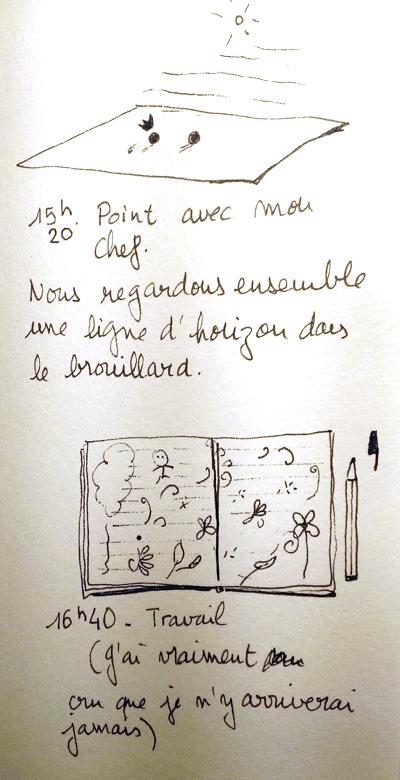 15h20. Point avec mon
Chef.
Nous regardons ensemble
une ligne d'horizon dans
le brouillard.
16h40 - Travail
(J'ai vraiment
cru que je n'y arriverai
jamais)